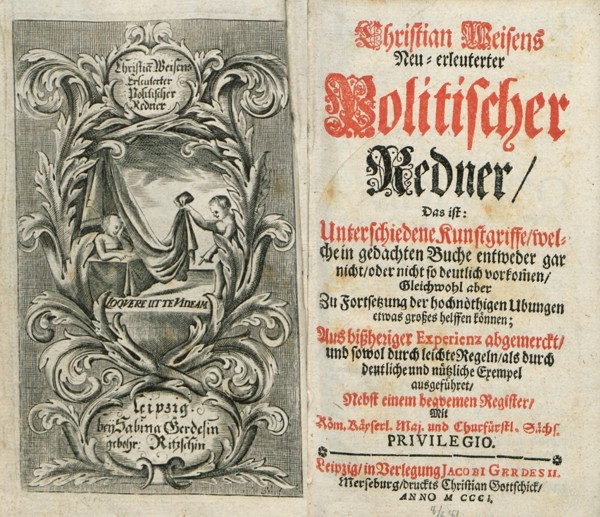 Christiā Weisens
Erleuterter
Politischer
Redner
LOQVERE UT TE VIDEAM
Leipzig.
beÿ Sabina Gerdesin
gebohr. Ritzschin
Christian Weisens
Neu-erleuterter
Politischer
Redner/
Das ist:
Unterschiedene Kunstgriffe/wel-
che in gedachten Buche entweder gar
nicht/oder nicht so deutlich vorkom̃en/
Gleichwohl aber
Zu Fortsetzung der hochnöthigen Ubungen
etwas großes helffen können;
Aus bißheriger Experienz abgemerckt/
und sowol durch leichte Regeln/als durch
deutliche und nützliche Exempel
ausgeführet/
Nebst einem beqvemen Register/
Mit
Röm. Käyserl. Maj. und Churfürstl. Sächs.
PRIVILEGIO.
Leipzig/in Verlegung JACOBI GERDESII.
Merseburg/druckts Christian Gottschick/
ANNO M CCCI.